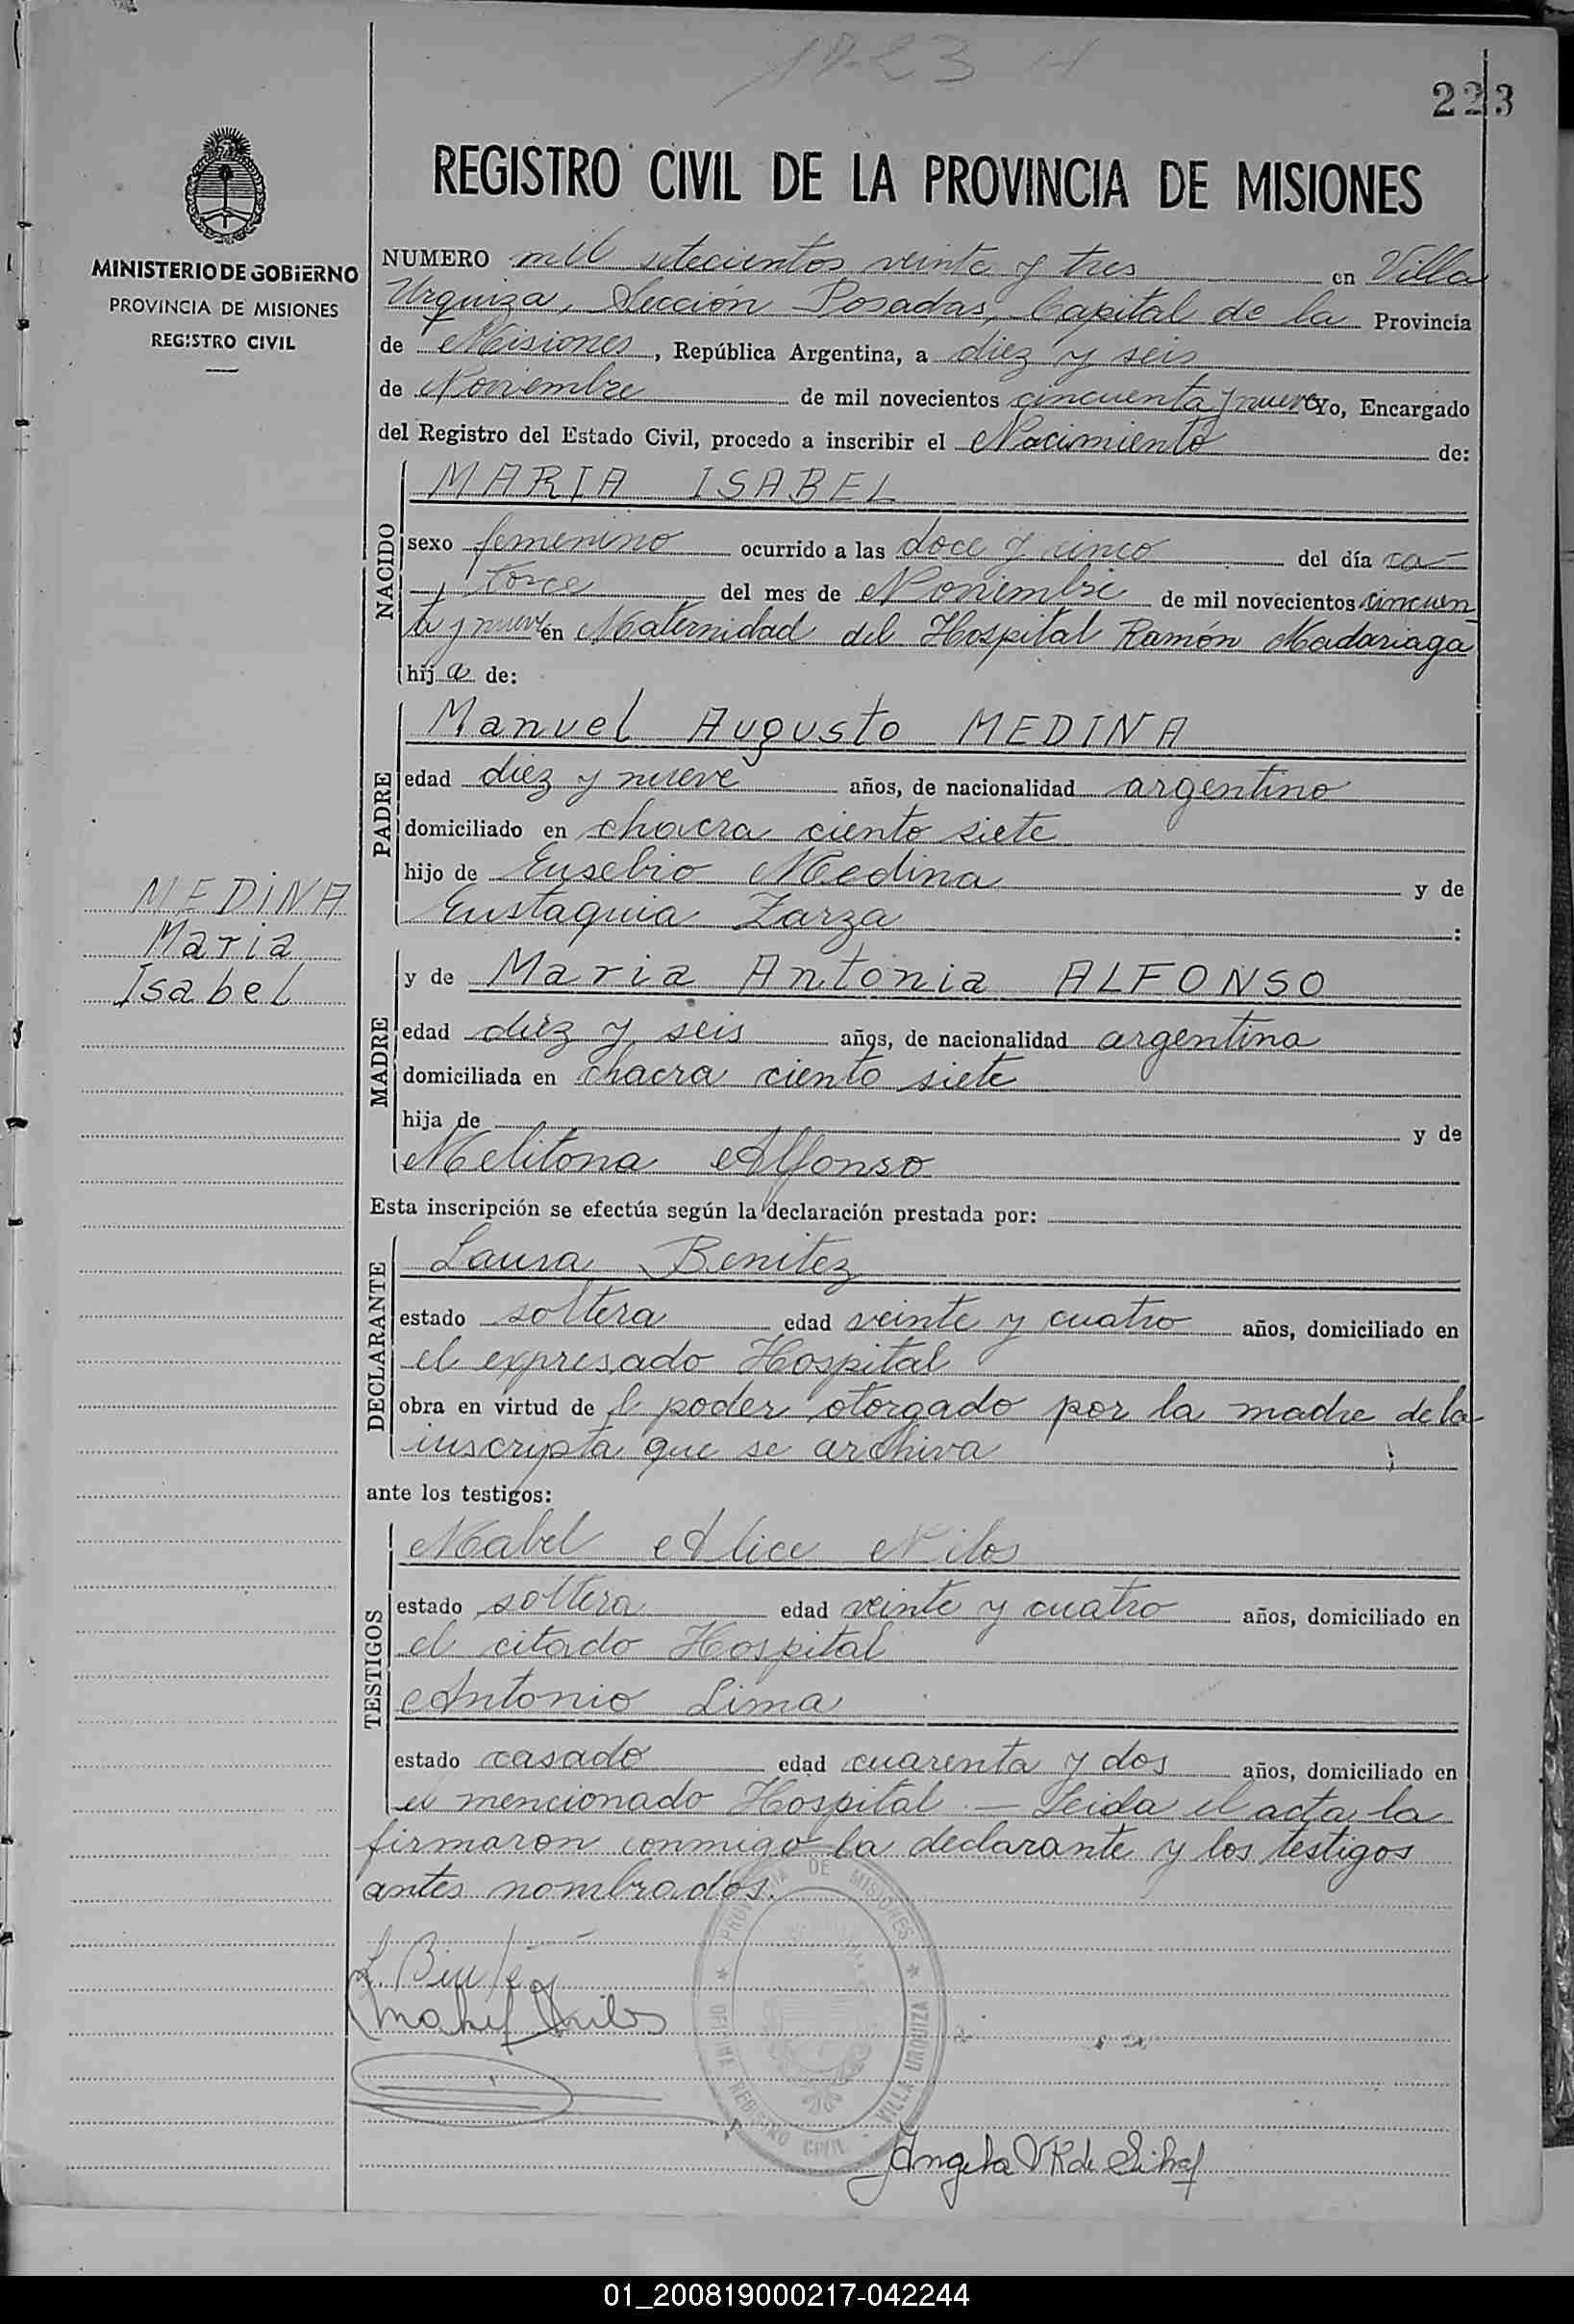 1723 H
223
REGISTRO CIVIL DE LA PROVINCIA DE MISIONES
MINISTERIO DE GOBIERNO
PROVINCIA DE MISIONES
REGISTRO CIVIL
NUMERO mil setecientos veinte y tres en Villa
Urquiza, Sección Posadas, Capital de la Provincia
de Misiones, República Argentina, a diez y seis
de Noviembre de mil novecientos cincuenta y nueve Yo, Encargado
del Registro del Estado Civil, procedo a inscribir el Nacimiento de:
NACIDO
MARIA ISABEL
sexo femenino ocurrido a las doce y cinco del día ca-
torce del mes de Noviembre de mil novecientos cincuen
ta y nueve en Maternidad del Hospital Ramón Madariaga
hij a de:
PADRE
Manuel Augusto MEDINA
edad diez y nueve años, de nacionalidad argentino
domiciliado en chacra ciento siete
hijo de Eusebio Medina y de
Eustaquia Zarza :
MEDINA
Maria
Isabel
MADRE
y de Maria Antonia ALFONSO
edad diez y seis años, de nacionalidad argentina
domiciliada en chacra ciento siete
hija de y de
Melitona Alfonso
Esta inscripción se efectúa según la declaración prestada por:
DECLARANTE
Laura Benitez
estado soltera edad veinte y cuatro años, domiciliado en
el expresado Hospital
obra en virtud de l poder otorgado por la madre de la
inscripta que se archiva ;
ante los testigos:
TESTIGOS
Mabel Alice Nilos
estado soltera edad veinte y cuatro años, domiciliado en
el citado Hospital
Antonio Lima
estado casado edad cuarenta y dos años, domiciliado en
el mencionado Hospital. — Leida el acta la
firmaron conmigo la declarante y los testigos
antes nombrados.
PROVINCIA DE MISIONES
OFICINA REGISTRO CIVIL
VILLA URQUIZA
L. Benitez
Mabel Nilos
Angela
01_200819000217-042244